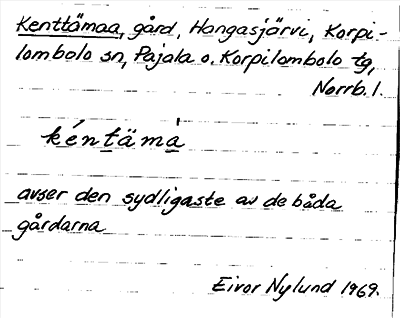 Kenttämaa, gård, Hangasjärvi, Korpi-
lombolo sn, Pajala o. Korpilombolo tg,
Norrb. l.
kéntämá
avser den sydligaste av de båda
gårdarna
Eivor Nylund 1969.